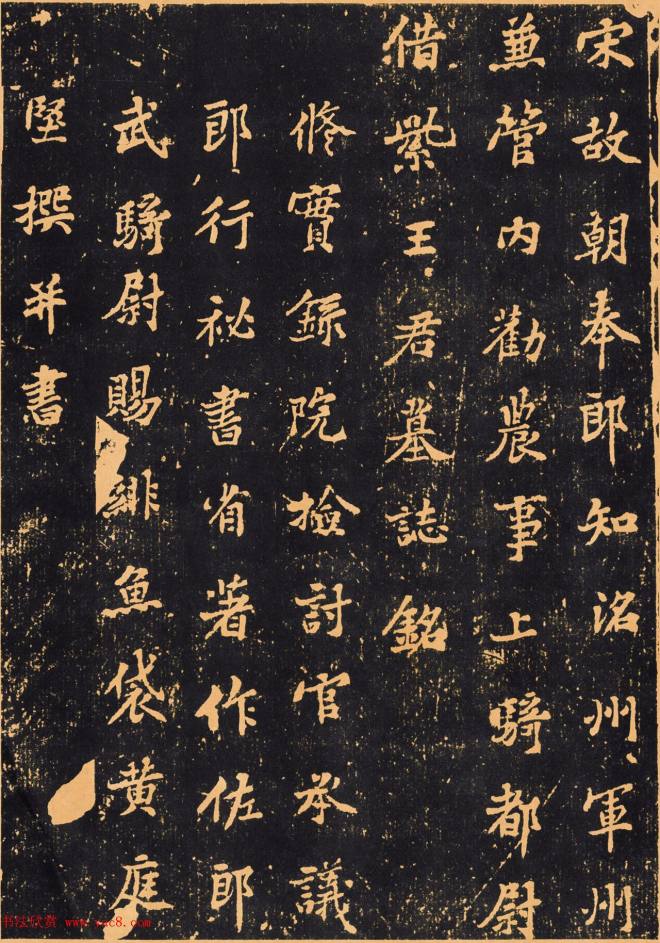 宋故朝奉郎知洺州軍州
兼管内勸農事上騎都尉
借紫王君墓誌銘
修實錄院檢討官承議
郎行祕書省著作佐郎
武騎尉賜緋魚袋黃庭
堅撰并書
书法欣赏 www.yac8.com